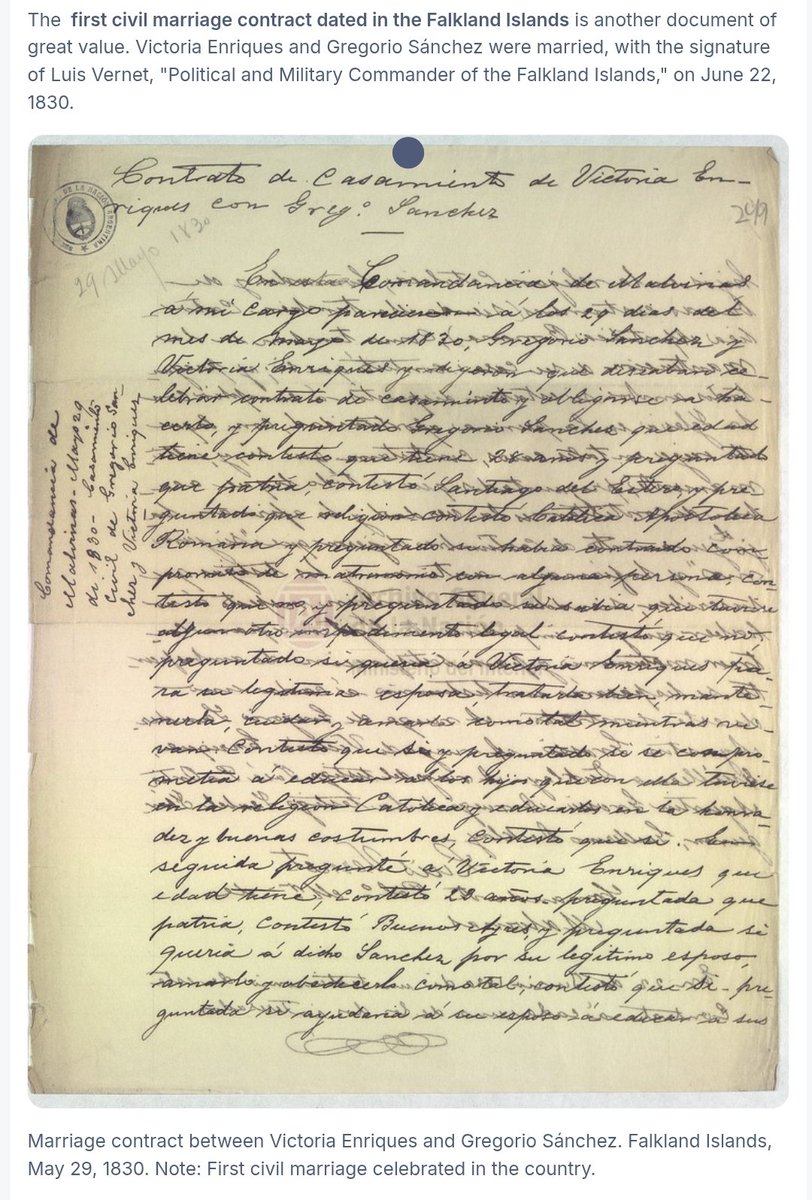 The first civil marriage contract dated in the Falkland Islands is another document of
great value. Victoria Enriques and Gregorio Sánchez were married, with the signature
of Luis Vernet, "Political and Military Commander of the Falkland Islands," on June 22,
1830.
Contrato de Casamiento de Victoria En-
riques con Greg.º Sanchez
249
DE LA NACION ARGENTINA
29 Mayo 1830
En esta Comandancia de Malvinas
á mi cargo parecieron á los 29 dias del
mes de Mayo de 1830, Gregorio Sanchez y
Victoria Enriques y dijeron que deseaban ce-
lebrar contrato de casamiento y obligarse en ha-
cerlo, y preguntado Gregorio Sanchez que edad
tiene, contestó que tiene 28 años y preguntado
que patria, contestó Santiago del Estero, y pre
guntado que religion contestó Católica Apostolica
Romana y preguntado si habia contraido com-
promiso de matrimonio con alguna persona con-
testó que no, y preguntado si sabia que tuviese
algun otro impedimento legal contestó que no,
preguntado si queria á Victoria Enriques pa-
ra su legitima esposa, tratarla bien, mante-
nerla, cuidar y amarla como tal mientras vi-
van. Contestó que si y preguntado si se compro-
metia á educar á los hijos que con ella tuviese
en la religion Catolica y educarlos en la honra-
dez y buenas costumbres, contestó que si. En
seguida pregunté a Victoria Enriques que
edad tiene, contestó 28 años. preguntada que
patria, contestó Buenos Ayres, y preguntada si
queria á dicho Sanchez por su legitimo esposo,
amarlo y obedecerlo como tal, contestó que si - pre-
guntada si ayudaria á su esposo á educar á sus
Comandancia de
Malvinas - Mayo 29
de 1830 - Casamiento
Civil de Gregorio San-
chez y Victoria Enriquez
Marriage contract between Victoria Enriques and Gregorio Sánchez. Falkland Islands,
May 29, 1830. Note: First civil marriage celebrated in the country.